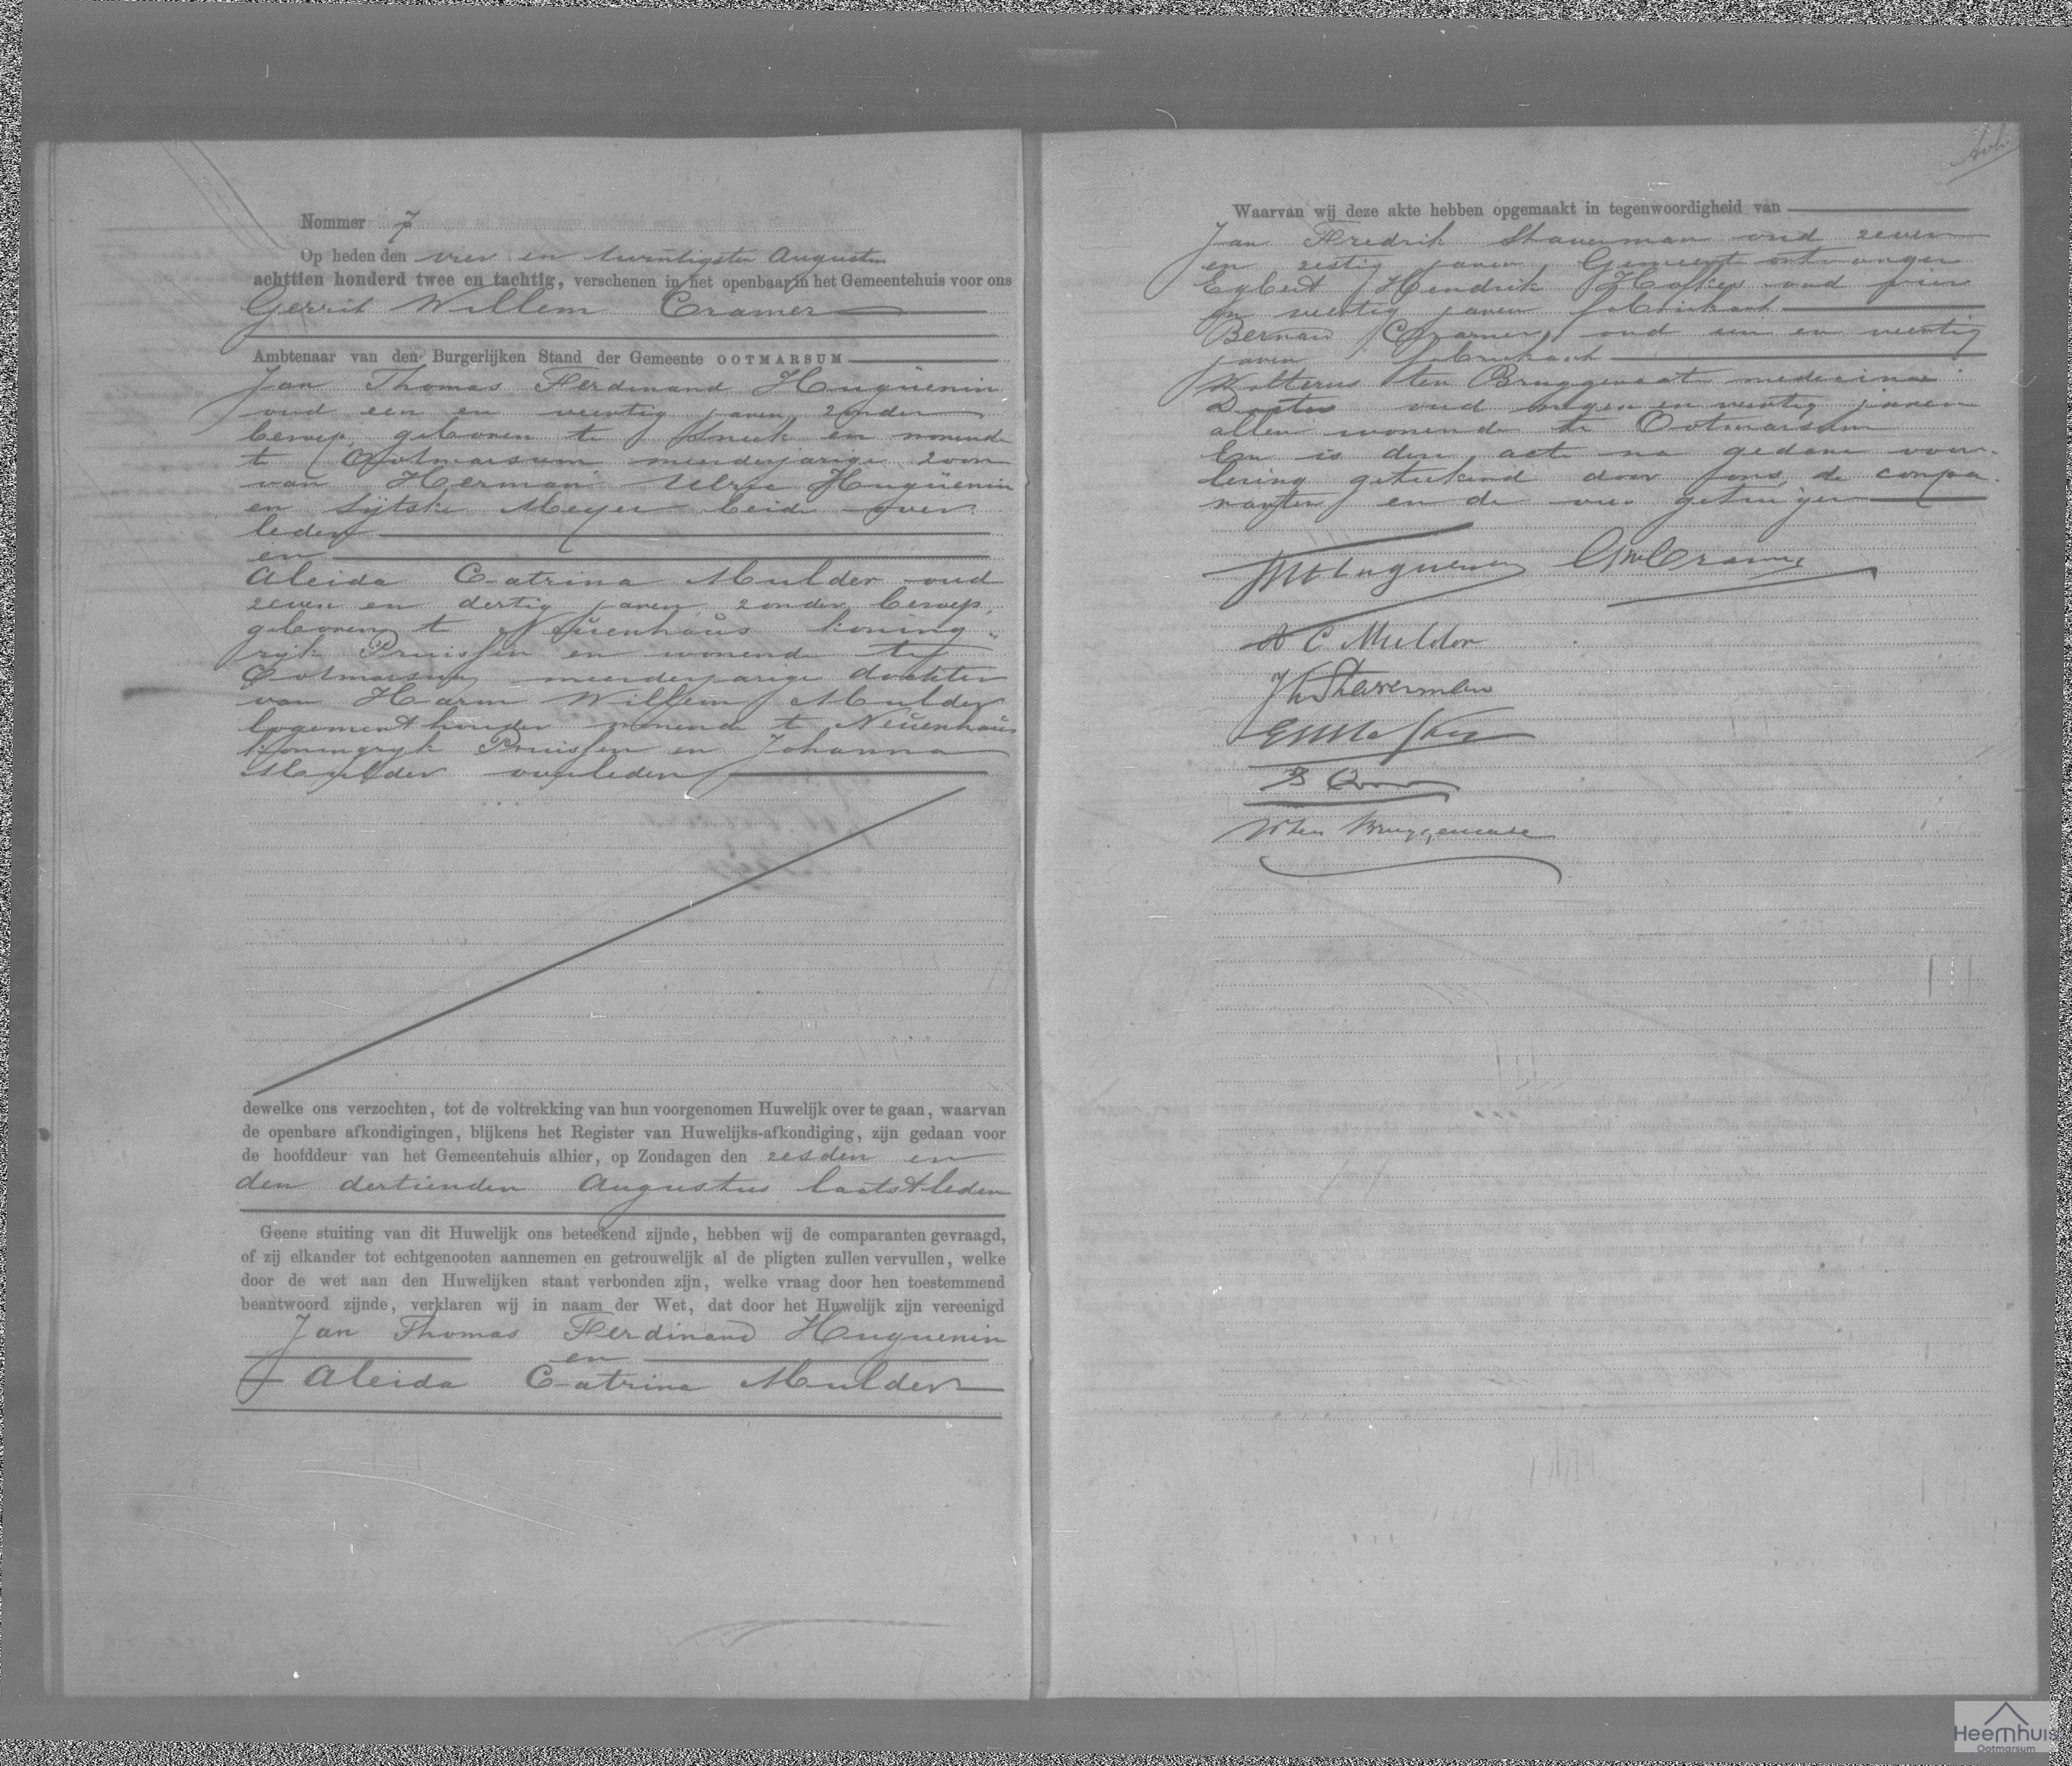 Nommer 7
Op heden den vier en twintigsten Augustus
achttien honderd twee en tachtig, verschenen in het openbaar in het Gemeentehuis voor ons
Gerrit Willem Cramer
Ambtenaar van den Burgerlijken Stand der Gemeente OOTMARSUM
Jan Thomas Ferdinand Huguenin
oud een en veertig jaren, zonder
beroep, geboren te Sneek en wonende
te Ootmarsum meerderjarige zoon
van Herman Ulric Huguenin
en Sijtske Meyer beide over
leden
en
Aleida Catrina Mulder oud
zeven en dertig jaren, zonder beroep,
geboren te Neuenhaus koning
rijk Pruissen en wonende te
Ootmarsum meerderjarige dochter
van Harm Willem Mulder
logementhouder wonende te Neuenhaus
koningryk Pruissen en Johanna
Mulder overleden
dewelke ons verzochten, tot de voltrekking van hun voorgenomen Huwelijk over te gaan, waarvan
de openbare afkondigingen, blijkens het Register van Huwelijks-afkondiging, zijn gedaan voor
de hoofddeur van het Gemeentehuis alhier, op Zondagen den zesden en
den dertienden Augustus laatstleden
Geene stuiting van dit Huwelijk ons beteekend zijnde, hebben wij de comparanten gevraagd,
of zij elkander tot echtgenooten aannemen en getrouwelijk al de pligten zullen vervullen, welke
door de wet aan den Huwelijken staat verbonden zijn, welke vraag door hen toestemmend
beantwoord zijnde, verklaren wij in naam der Wet, dat door het Huwelijk zijn vereenigd
Jan Thomas Ferdinand Huguenin
en
Aleida Catrina Mulder
Waarvan wij deze akte hebben opgemaakt in tegenwoordigheid van
Jan Fredrik Staverman oud zeven
en zestig jaren, Gemeente ontvanger
Egbert Hendrik Hofkes oud vier
en veertig jaren fabrikant
Bernard Cramer, oud een en veertig
jaren fabrikant
Wolterus ten Bruggencate medicinae
Doctor oud negen en veertig jaren
allen wonende te Ootmarsum
En is deze acte na gedane voor
lezing geteekend door ons, de compa
ranten en de vier getuigen
Huguenin GWCramer
A C Mulder
Staverman
EHHofkes
B Cramer
W ten Bruggencate
Heemhuis
Ootmarsum